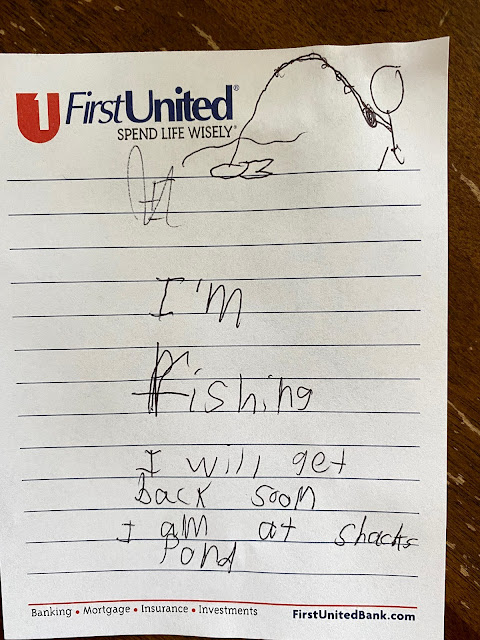 1 FirstUnited®
SPEND LIFE WISELY®
I'm
Fishing
I will get
back soon
I am at shacks
Pond
Banking • Mortgage • Insurance • Investments
FirstUnitedBank.com